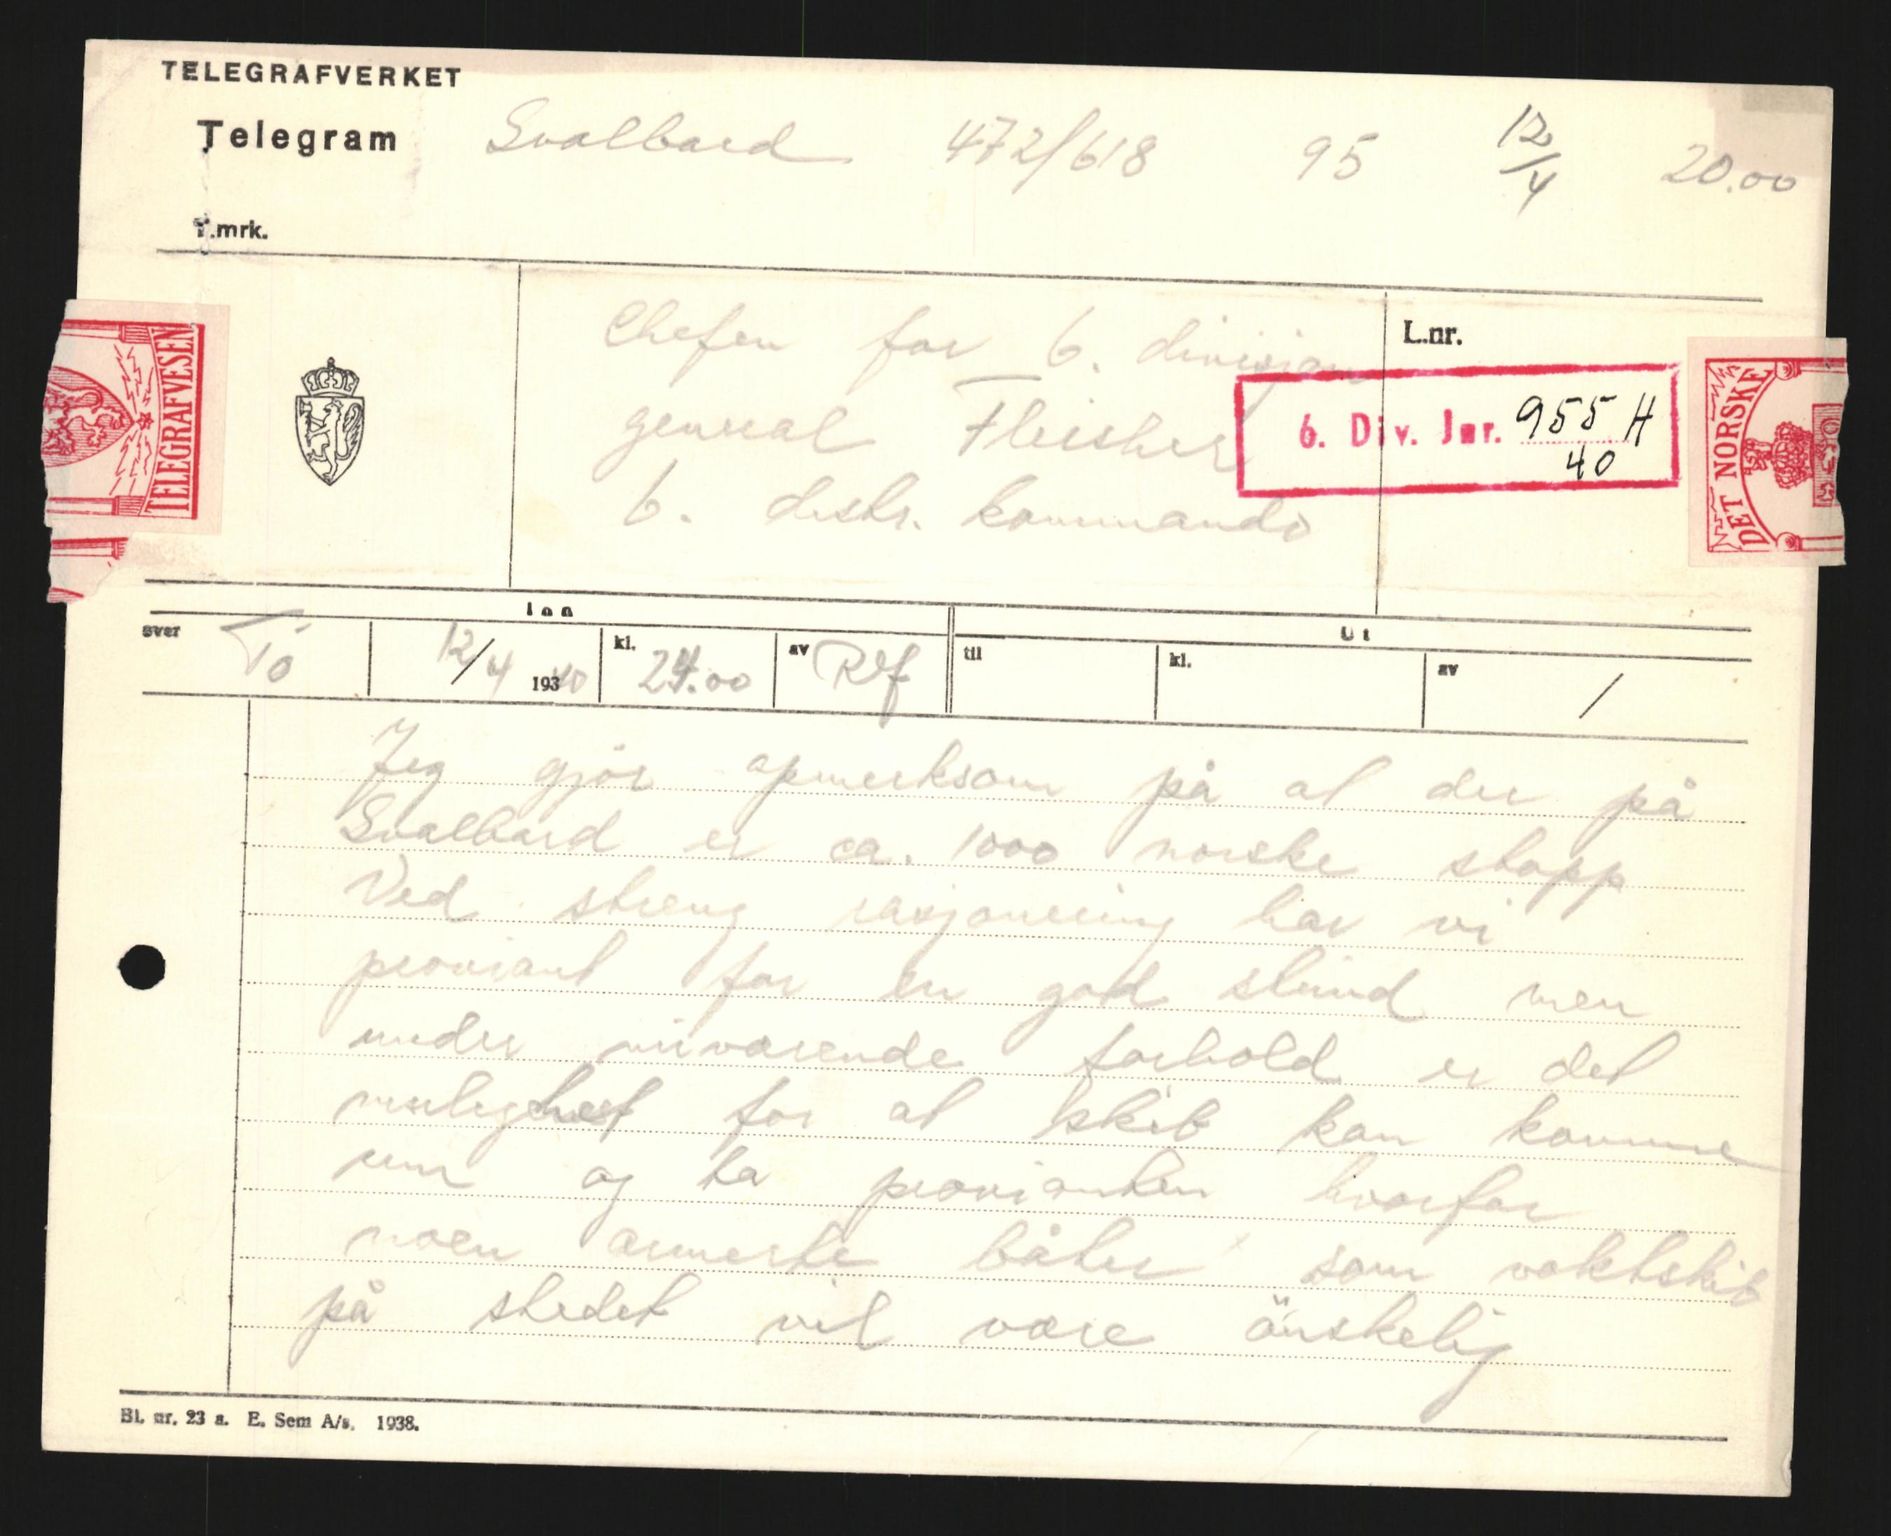 TELEGRAFVERKET
Telegram Svalbard 472/618 95 12/4 20.00
T.mrk.
Chefen for 6. divisjon
L.nr.
general Fleisher
6. Div. Jnr. 955 H
40
6. distr. kommando
TELEGRAFVESEN
DET NORSKE
Inn
Ut
over Tö 12/4 1940 kl. 24.00 av til kl. av /
Jeg gjör opmerksom på at der på
Svalbard er ca. 1000 norske stopp
Ved streng rasjonering har vi
proviant for en god stund men
under nuværende forhold er det
mulighet for at skib kan komme
inn og ta provianten hvorfor
noen armerte båter som vaktskib
på stedet vil være önskelig
Bl. nr. 23 a. E. Sem A/s. 1938.